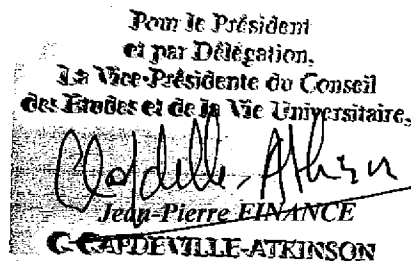 Pour le Président
et par Délégation,
La Vice-Présidente du Conseil
des Etudes et de la Vie Universitaire,
Capdeville-Atkinson
Jean-Pierre FINANCE
C. CAPDEVILLE-ATKINSON